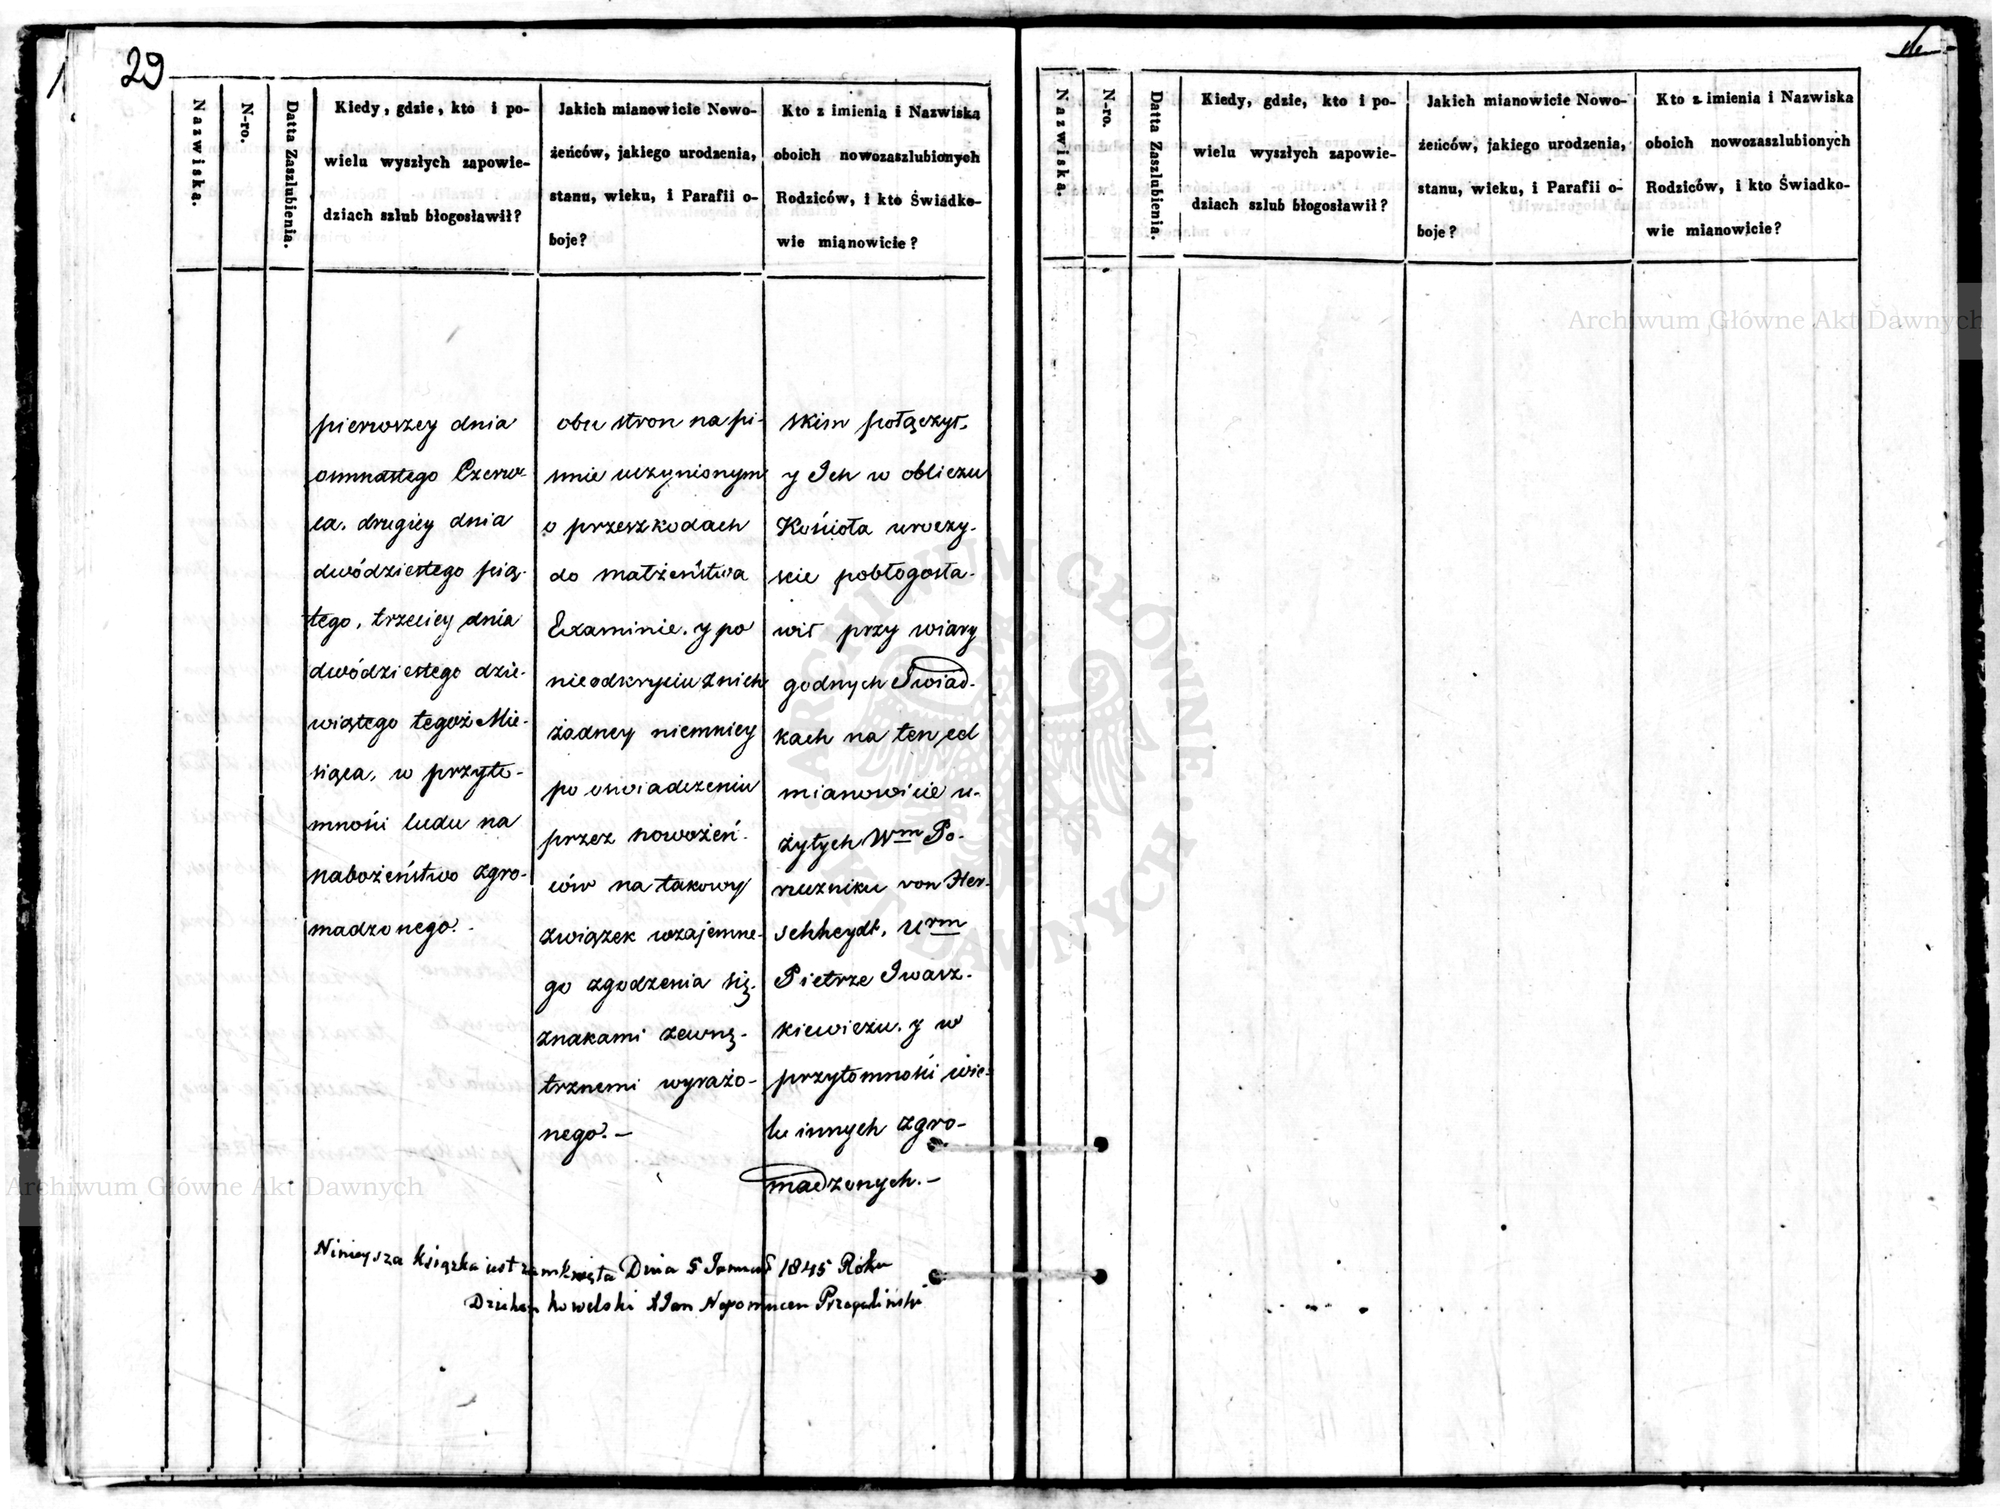 29
Nazwiska.
N-ro.
Datta Zaszlubienia.
Kiedy, gdzie, kto i po-
wielu wyszłych zapowie-
dziach szlub błogosławił?
Jakich mianowicie Nowo-
żeńców, jakiego urodzenia,
stanu, wieku, i Parafii o-
boje?
Kto z imienia i Nazwiska
oboich nowozaszlubionych
Rodziców, i kto Świadko-
wie mianowicie?
pierwszey dnia
osmnastego Czerw-
ca. drugiey dnia
dwódziestego pią-
tego, trzeciey dnia
dwódziestego dzie-
wiątego tegoż Mie-
siąca, w przyto-
mności ludu na
nabożeństwo zgro-
madzonego.-
obu stron na pi-
śmie uczynionym
o przeszkodach
do małżeństwa
Examinie. y po
nieodkryciu z nich
żadney niemniey
po oswiadczeniu
przez nowożeń-
ców na takowy
związek wzajemne-
go zgodzenia się.
znakami zewnę-
trznemi wyrażo-
nego.-
skim połączył.
y Ich w obliczu
Kościoła uroczy-
scie pobłogosła-
wił przy wiary
godnych Swiad-
kach na ten cel
mianowicie u-
żytych Wm Po-
ruczniku von Her-
schheydt, Urm
Pietrze Iwasz-
kiewiczu. y w
przytomności wie-
lu innych zgro-
madzonych.-
Ninieysza Książka iest zamknięta Dnia 5 1845 Roku
Dziekan Kowelski X Jan Nepomucen
Nazwiska.
N-ro.
Datta Zaszlubienia.
Kiedy, gdzie, kto i po-
wielu wyszłych zapowie-
dziach szlub błogosławił?
Jakich mianowicie Nowo-
żeńców, jakiego urodzenia,
stanu, wieku, i Parafii o-
boje?
Kto z imienia i Nazwiska
oboich nowozaszlubionych
Rodziców, i kto Świadko-
wie mianowicie?
Archiwum Główne Akt Dawnych
Archiwum Główne Akt Dawnych
ARCHIWUM GŁÓWNE AKT DAWNYCH